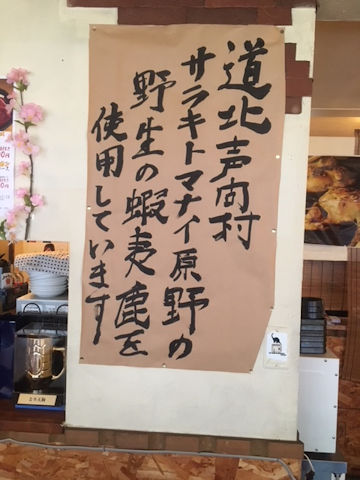 道北声向村
サラキトマナイ原野の
野生の蝦夷鹿を
使用しています